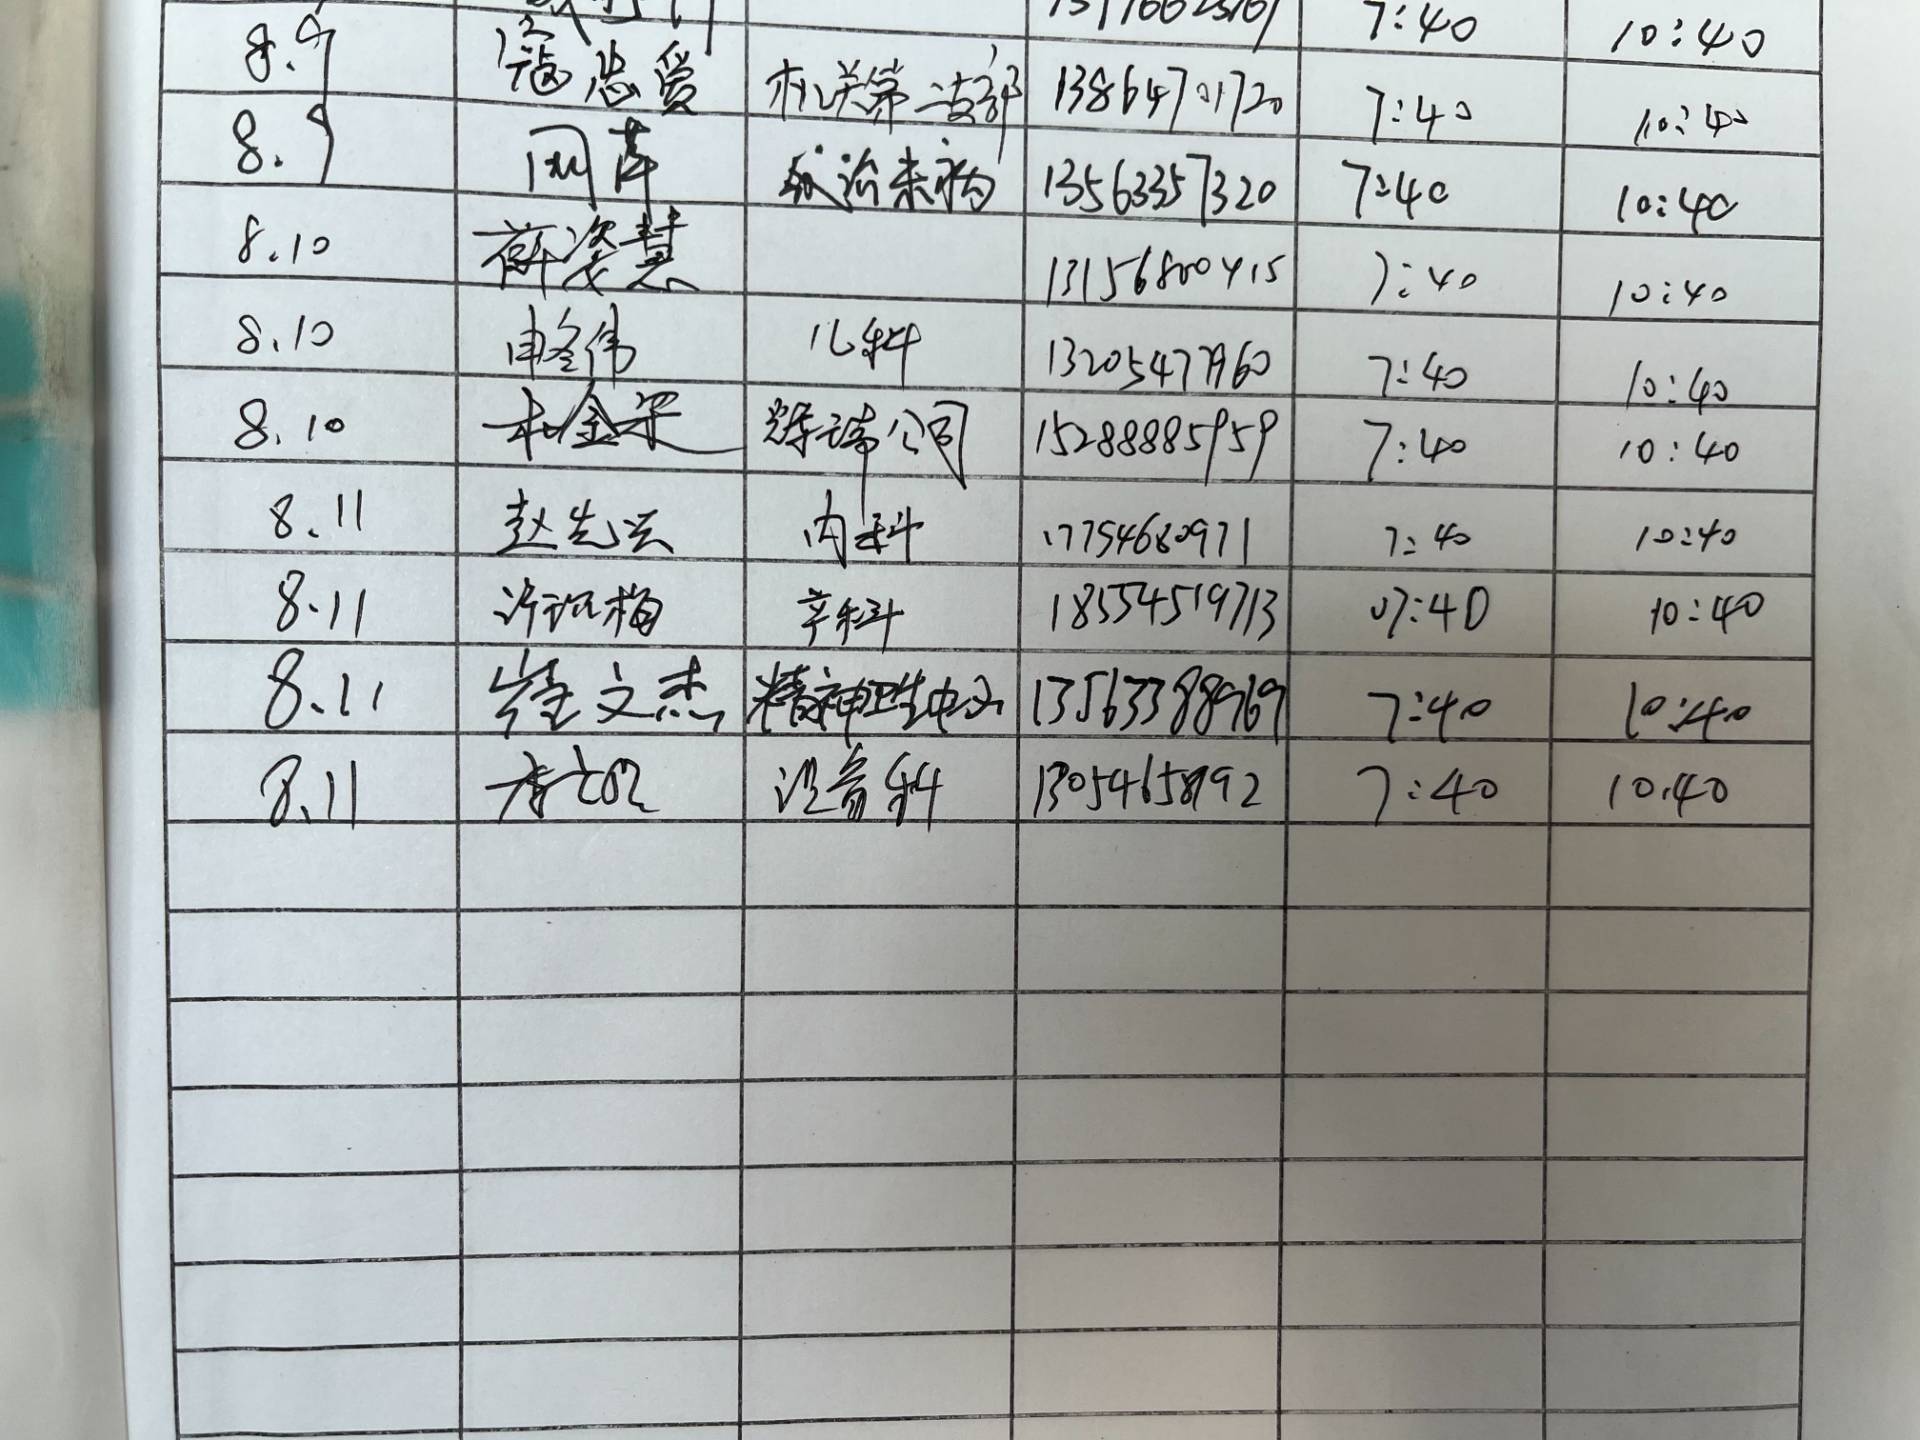 7:40 10:40
8.9 机关第二支部 13864701720 7:40 10:40
8.9 13563357320 7:40 10:40
8.10 薛姿慧 13156800415 7:40 10:40
8.10 儿科 7:40 10:40
8.10 公司 15288885959 7:40 10:40
8.11 赵先云 内科 17754680971 7:40 10:40
8.11 产科 18554519713 07:40 10:40
8.11 崔文杰 精神卫生中心 13563388969 7:40 10:40
8.11 设备科 7:40 10:40